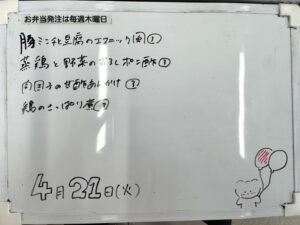 お弁当発注は毎週木曜日
豚ミンチと豆腐のエスニック風①
蒸鶏と野菜のおろしポン酢①
肉団子の甘酢あんかけ③
鶏のさっぱり煮
4月21日(火)